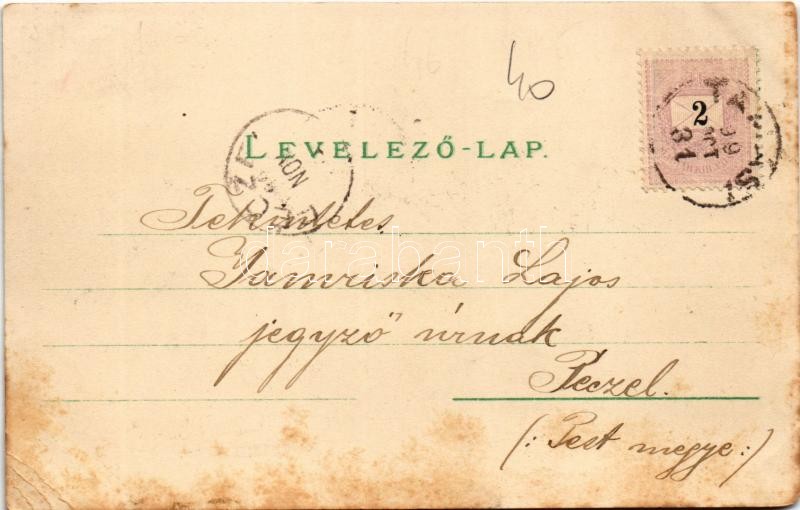 40
2
99
OKT
31
LEVELEZŐ-LAP.
NOV
Tekintetes
Jamriska Lajos
jegyző úrnak
Peczel.
(: Pest megye :)
darabanth